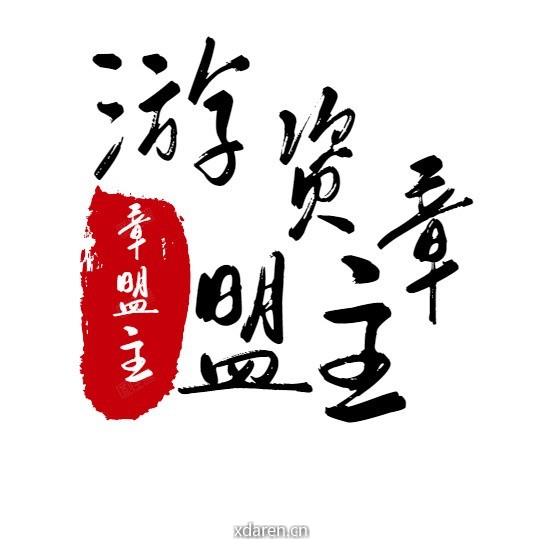 游资章
盟主
章盟主
xdaren.cn